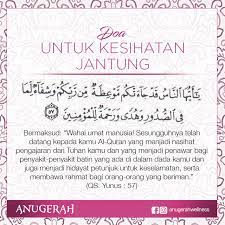 Doa
UNTUK KESIHATAN
JANTUNG
يَٰٓأَيُّهَا ٱلنَّاسُ قَدْ جَآءَتْكُم مَّوْعِظَةٌ مِّن رَّبِّكُمْ وَشِفَآءٌ لِّمَا
فِى ٱلصُّدُورِ وَهُدًى وَرَحْمَةٌ لِّلْمُؤْمِنِينَ ٥٧
Bermaksud: "Wahai umat manusia! Sesungguhnya telah
datang kepada kamu Al-Quran yang menjadi nasihat
pengajaran dari Tuhan kamu dan yang menjadi penawar bagi
penyakit-penyakit batin yang ada di dalam dada kamu dan
juga menjadi hidayat petunjuk untuk keselamatan, serta
membawa rahmat bagi orang-orang yang beriman."
(QS: Yunus : 57)
ANUGERAH
anugerahwellness